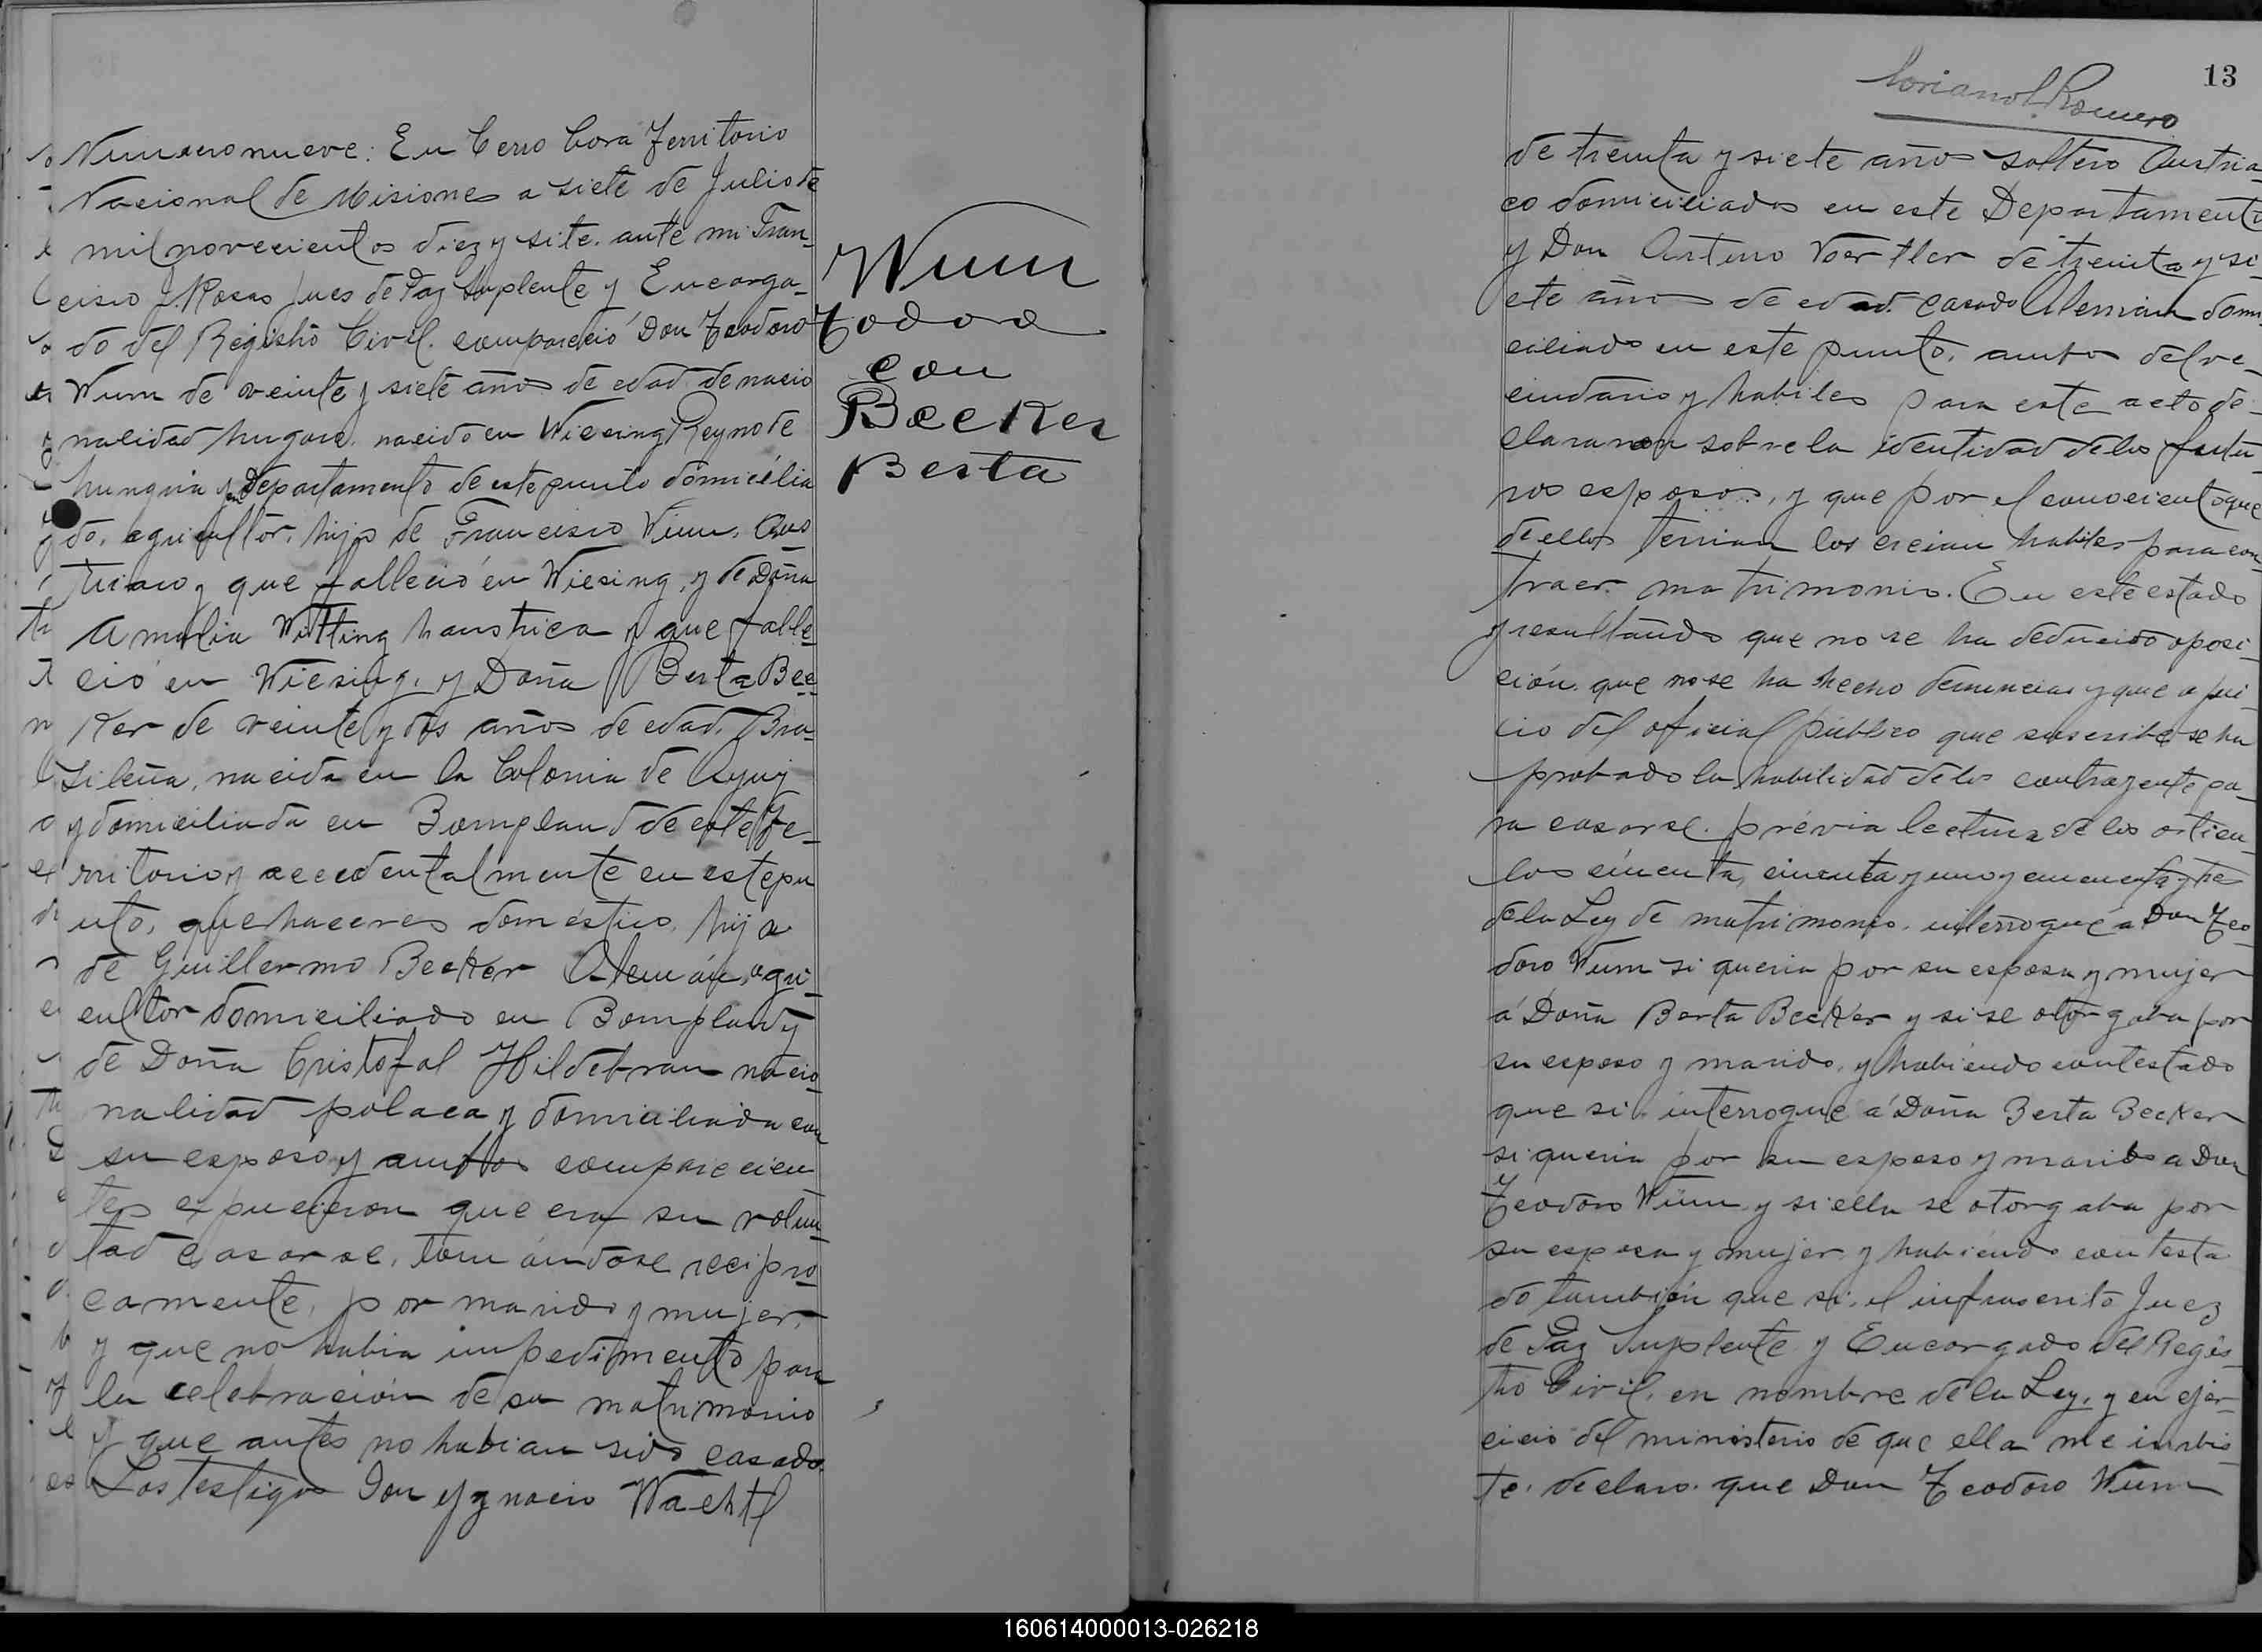 Numero nueve: En Cerro Cora Territorio
Nacional de Misiones a siete de Julio de
mil novecientos diez y siete. ante mi Fran-
cisco J. Rosas Jues de Paz Suplente y Encarga-
do del Registro Civil. compareció Don Teodoro
Wum de veinte y siete años de edad de nacio
nalidad hugara. nacido en Wiesing Reyno de
hungria y en Departamento de este punto domicilia
do, agricultor, hijo de Francisco Wum, Aus
triaco y que falleció en Wiesing, y de Doña
Amalia Witting haustrica y que falle
ció en Wiesing. y Doña Berta Bec
Ker de veinte y dos años de edad. Bra-
sileña, nacida en la Colonia de Ayuy
y domiciliada en Bompland de este Te-
rritorio y accedentalmente en este pu
nto, quehaceres doméstico, hija
de Guillermo Becker Alemán, agri-
cultor domiciliado en Bompland y
de Doña Cristofal Hildebran nacio-
nalidad polaca y domiciliada con
su esposo y ambos comparecien
tes expucieron que era su volun
tad casarse, tomándose recipro
camente, por marido y mujer,
y que no habia impedimento para
la celebración de su matrimonio
y que antes no habian sido casado.
Los testigos Don Ygnacio Wachtl
Wum
Todoro
con
Becker
Berta
13
Romero
de treinta y siete años soltero Austria-
co domiciliados en este Departamento
y Don Arturo Voertler de treinta y si-
ete años de edad. casado Aleman domi
ciliado en este punto, ambos del ve-
cindario y habiles para este acto de-
claranon sobre la identidad de los futu-
ros esposos, y que por el conociento que
de ellos tenian los creian habiles para con
traer. matrimonio. En este estado
y resultando que no se ha deducido oposi-
ción. que no se ha hecho denuncias y que a jui-
cio del oficial público que suscribe se ha
probado la habilidad de los contrayente pa-
ra casarse. prévia lectura de los articu-
los cincuenta, cincuenta y uno y cincuenta y tres
de la Ley de matrimonio. interrogué a Don Teo-
doro Wum si queria por su esposa y mujer
á Doña Berta Becker y si se otorgaba por
su esposo y marido, y habiendo contestado
que si. interrogue á Doña Berta Becker
si queria por su esposo y marido a Don
Teodoro Wum y si ella se otorgaba por
su esposa y mujer y habiendo contesta
do también que si. el infrascrito Juez
de Paz Suplente y Encargado del Regis-
tro Civil, en nombre de la Ley, y en ejer-
cicio del ministerio de que ella me inbis-
te. declaro. que Don Teodoro Wum
160614000013-026218